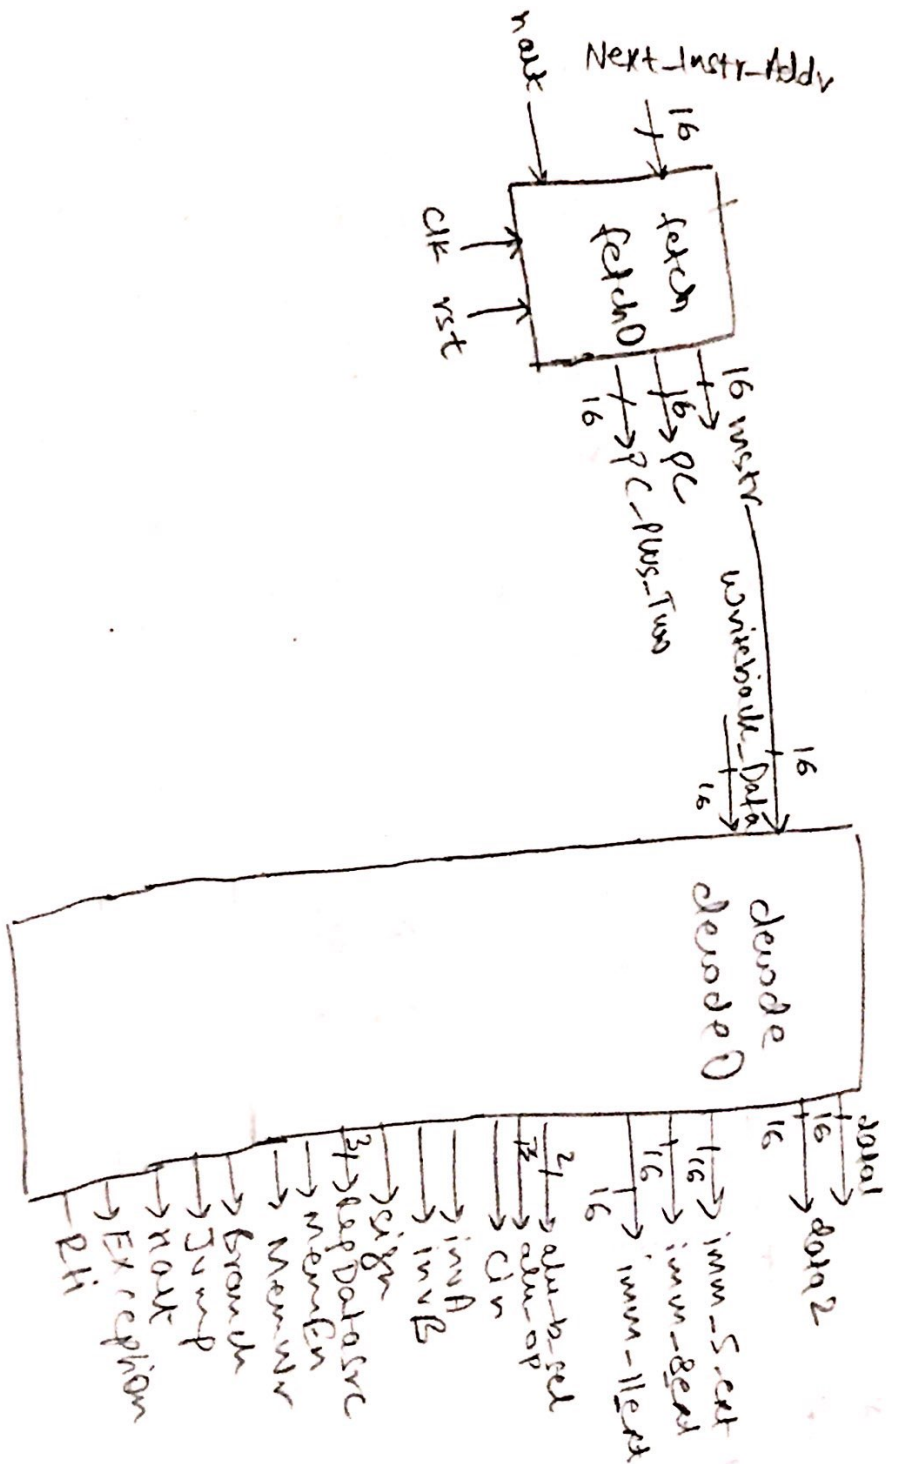 halt
Next_Instr_Addr
16
clk
rst
fetch
fetch0
16 instr
16
PC
16
PC_Plus_Two
Writeback_Data
16
16
decode
decode0
data1
16
data2
16
imm_5_ext
16
imm_8_ext
16
imm_11_ext
16
alu_b_sel
2
alu_op
Cin
invA
invB
sign
RegDataSrc
3
MemEn
MemWr
Branch
Jump
Halt
Exception